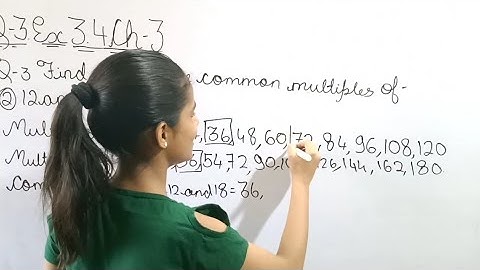 Q-3 Ex 3.4 Ch-3
Q-3 Find common multiples of-
② 12 an
Mul 36 48, 60, 72, 84, 96, 108, 120
Mult 36 54, 72, 90, 26, 144, 162, 180
Com 12 and 18 = 36,